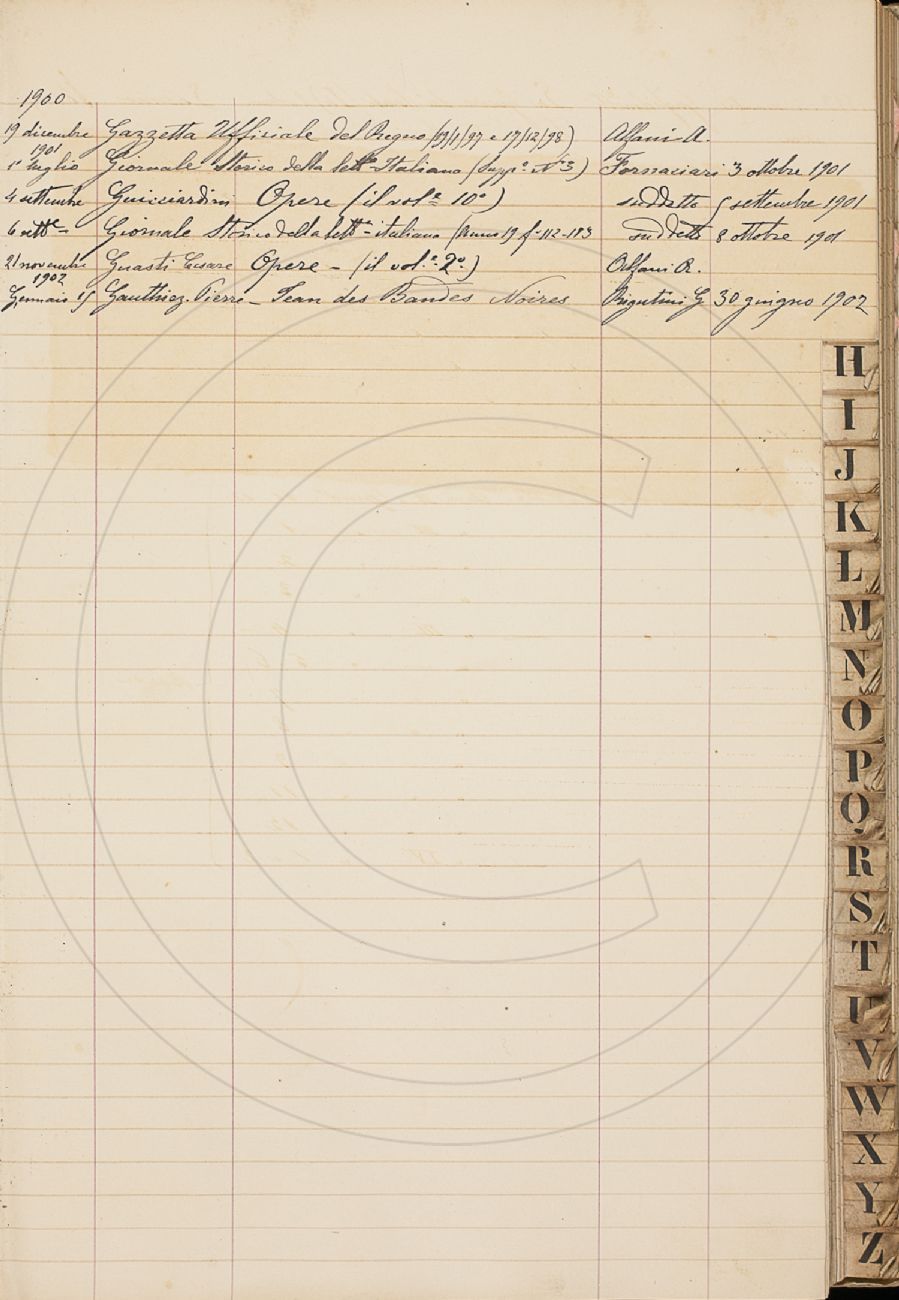 1900
19 dicembre Gazzetta Ufficiale del Regno (19/1/97 e 17/12/98) Alfani A.
1901
1° luglio Giornale Storico della lettª Italiana (Suppº. Nº 3) Fornaciari 3 ottobre 1901
4 settembre Guicciardini Opere (il volᵉ 10°) suddetto 5 settembre 1901
6 settᵉ Giornale Storico della lettª italiana (Anno 19 fⁱ 112-113 suddetto 8 ottobre 1901
21 novembre Guasti Cesare Opere - (il vol.ᵉ 2°.) Alfani A.
1902
Gennaio 15 Gauthiez. Pierre - Jean des Bandes Noires Rigutini G 30 giugno 1902
H
I
J
K
L
M
N
O
P
Q
R
S
T
U
V
W
X
Y
Z